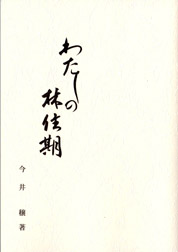 わたしの
林住期
今井 穰 著